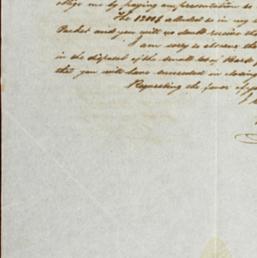 oblige me by paying on presentation to
The 1300$ alluded to in my
Packet and you will no doubt receive the
I am sorry to observe tha
in the disposal of the small lot of
that you will have succeeded in closing
Requesting the favor of